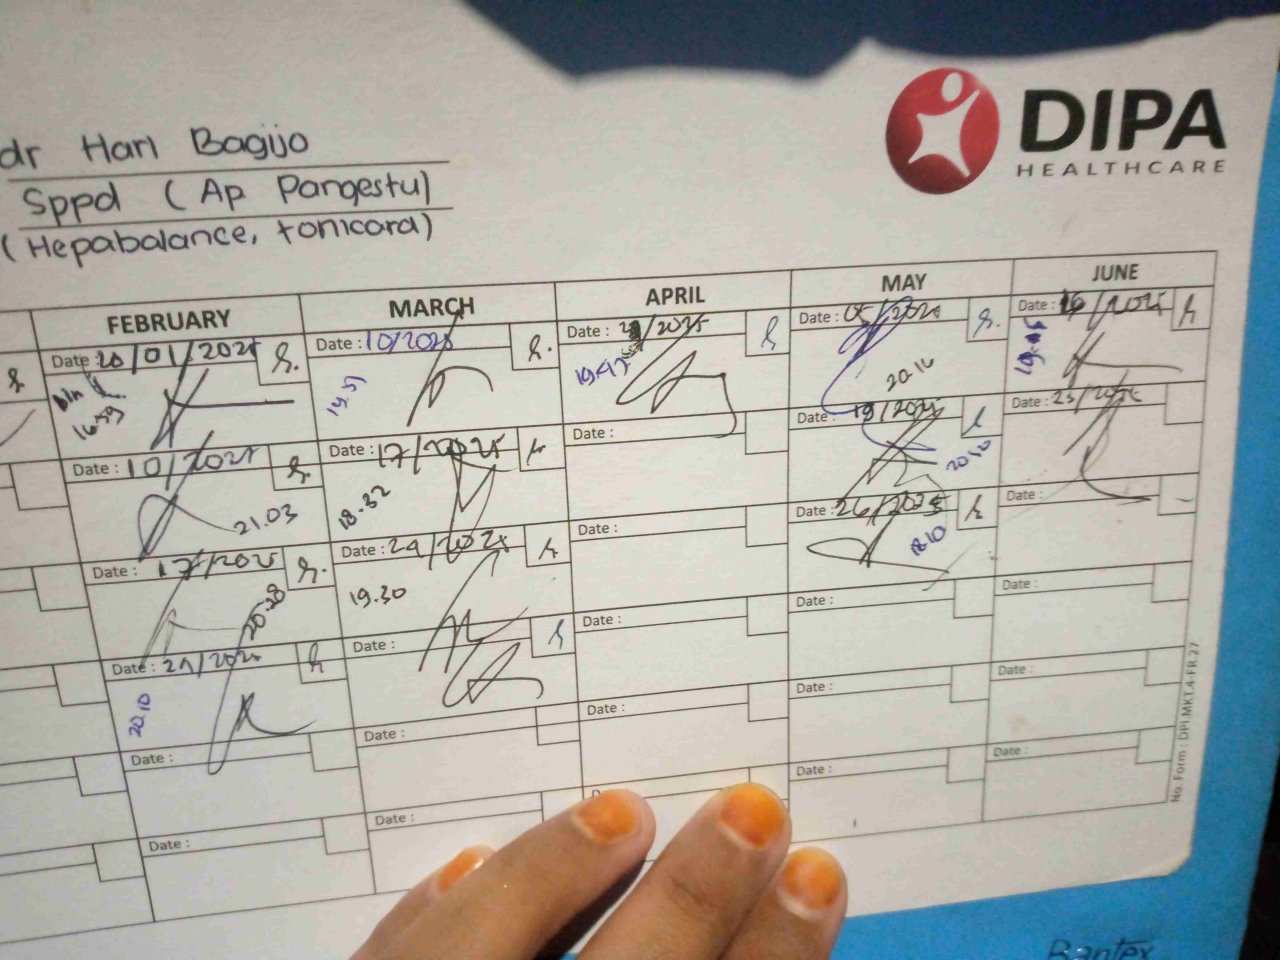 dr Hari Bagijo
Sppd (Ap Pangestu)
(Hepabalance, tonicard)
DIPA
HEALTHCARE
FEBRUARY
MARCH
APRIL
MAY
JUNE
Date : 20/01/2025
bln
16.59
Date : 10/2025
Date : /2025
19.43
Date :
20.16
Date : 16/2025
Date : 10/2025
21.03
Date : 17/2025
18.32
Date :
Date : 19/2025
20.10
Date : 23/2025
Date : 17/2025
20.28
Date : 24/2025
19.30
Date :
Date : 26/2025
18.10
Date :
Date : 24/2025
20.10
Date :
Date :
Date :
Date :
Date :
Date :
Date :
Date :
Date :
Date :
Date :
Date :
Date :
No. Form : DPI.MKT.4-FR.27
Bantex